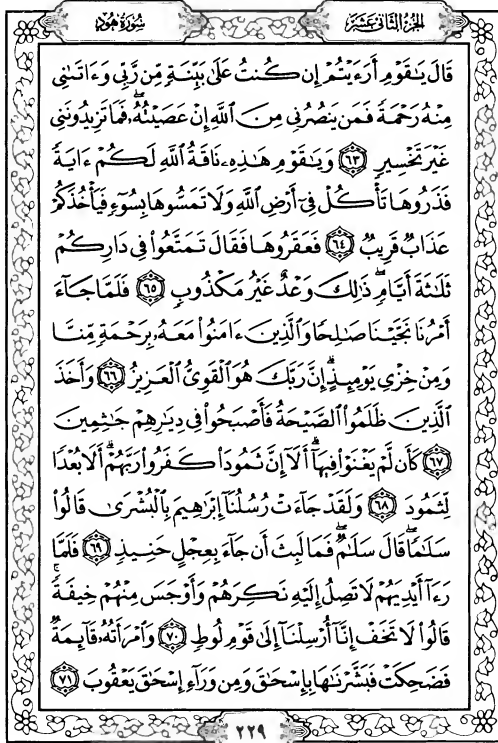 سُورَةُ هُودٍ
الجُزءُ الثَّانِي عَشَرَ
قَالَ يَٰقَوْمِ أَرَءَيْتُمْ إِن كُنتُ عَلَىٰ بَيِّنَةٍ مِّن رَّبِّي وَءَاتَىٰنِي
مِنْهُ رَحْمَةً فَمَن يَنصُرُنِي مِنَ ٱللَّهِ إِنْ عَصَيْتُهُۥۖ فَمَا تَزِيدُونَنِي
غَيْرَ تَخْسِيرٍ ٦٣ وَيَٰقَوْمِ هَٰذِهِۦ نَاقَةُ ٱللَّهِ لَكُمْ ءَايَةً
فَذَرُوهَا تَأْكُلْ فِيٓ أَرْضِ ٱللَّهِ وَلَا تَمَسُّوهَا بِسُوٓءٍ فَيَأْخُذَكُمْ
عَذَابٌ قَرِيبٌ ٦٤ فَعَقَرُوهَا فَقَالَ تَمَتَّعُوا۟ فِي دَارِكُمْ
ثَلَٰثَةَ أَيَّامٍۖ ذَٰلِكَ وَعْدٌ غَيْرُ مَكْذُوبٍ ٦٥ فَلَمَّا جَآءَ
أَمْرُنَا نَجَّيْنَا صَٰلِحًا وَٱلَّذِينَ ءَامَنُوا۟ مَعَهُۥ بِرَحْمَةٍ مِّنَّا
وَمِنْ خِزْيِ يَوْمِئِذٍۗ إِنَّ رَبَّكَ هُوَ ٱلْقَوِيُّ ٱلْعَزِيزُ ٦٦ وَأَخَذَ
ٱلَّذِينَ ظَلَمُوا۟ ٱلصَّيْحَةُ فَأَصْبَحُوا۟ فِي دِيَٰرِهِمْ جَٰثِمِينَ
٦٧ كَأَن لَّمْ يَغْنَوْا۟ فِيهَآۗ أَلَآ إِنَّ ثَمُودَا۟ كَفَرُوا۟ رَبَّهُمْۗ أَلَا بُعْدًا
لِّثَمُودَ ٦٨ وَلَقَدْ جَآءَتْ رُسُلُنَآ إِبْرَٰهِيمَ بِٱلْبُشْرَىٰ قَالُوا۟
سَلَٰمًاۖ قَالَ سَلَٰمٌۖ فَمَا لَبِثَ أَن جَآءَ بِعِجْلٍ حَنِيذٍ ٦٩ فَلَمَّا
رَءَآ أَيْدِيَهُمْ لَا تَصِلُ إِلَيْهِ نَكِرَهُمْ وَأَوْجَسَ مِنْهُمْ خِيفَةًۚ
قَالُوا۟ لَا تَخَفْ إِنَّآ أُرْسِلْنَآ إِلَىٰ قَوْمِ لُوطٍ ٧٠ وَٱمْرَأَتُهُۥ قَآئِمَةٌ
فَضَحِكَتْ فَبَشَّرْنَٰهَا بِإِسْحَٰقَ وَمِن وَرَآءِ إِسْحَٰقَ يَعْقُوبَ ٧١
٢٢٩